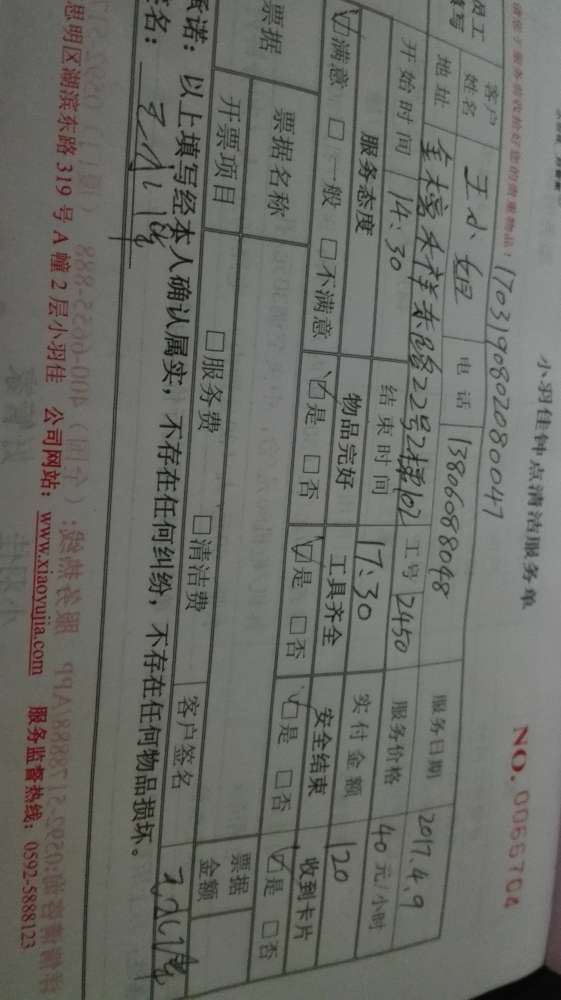 小羽佳钟点清洁服务单
NO. 0065704
1703190802080047
员工
客户
姓名 王小姐 电话 13806088048 服务日期 2017.4.9
地址 22号2楼102 工号 2450 服务价格 40元/小时
开始时间 14:30 结束时间 17:30 实付金额 120
服务态度 物品完好 工具齐全 安全结束 收到卡片
☑满意 □一般 □不满意 ☑是 □否 ☑是 □否 ☑是 □否 ☑是 □否
票据 票据名称 票据金额
开票项目 □服务费 □清洁费 客户签名
承诺：以上填写经本人确认属实，不存在任何纠纷，不存在任何物品损坏。
签名：
思明区湖滨东路319号A幢2层小羽佳 公司网站：www.xiaoyujia.com 服务监督热线：0592-5888123